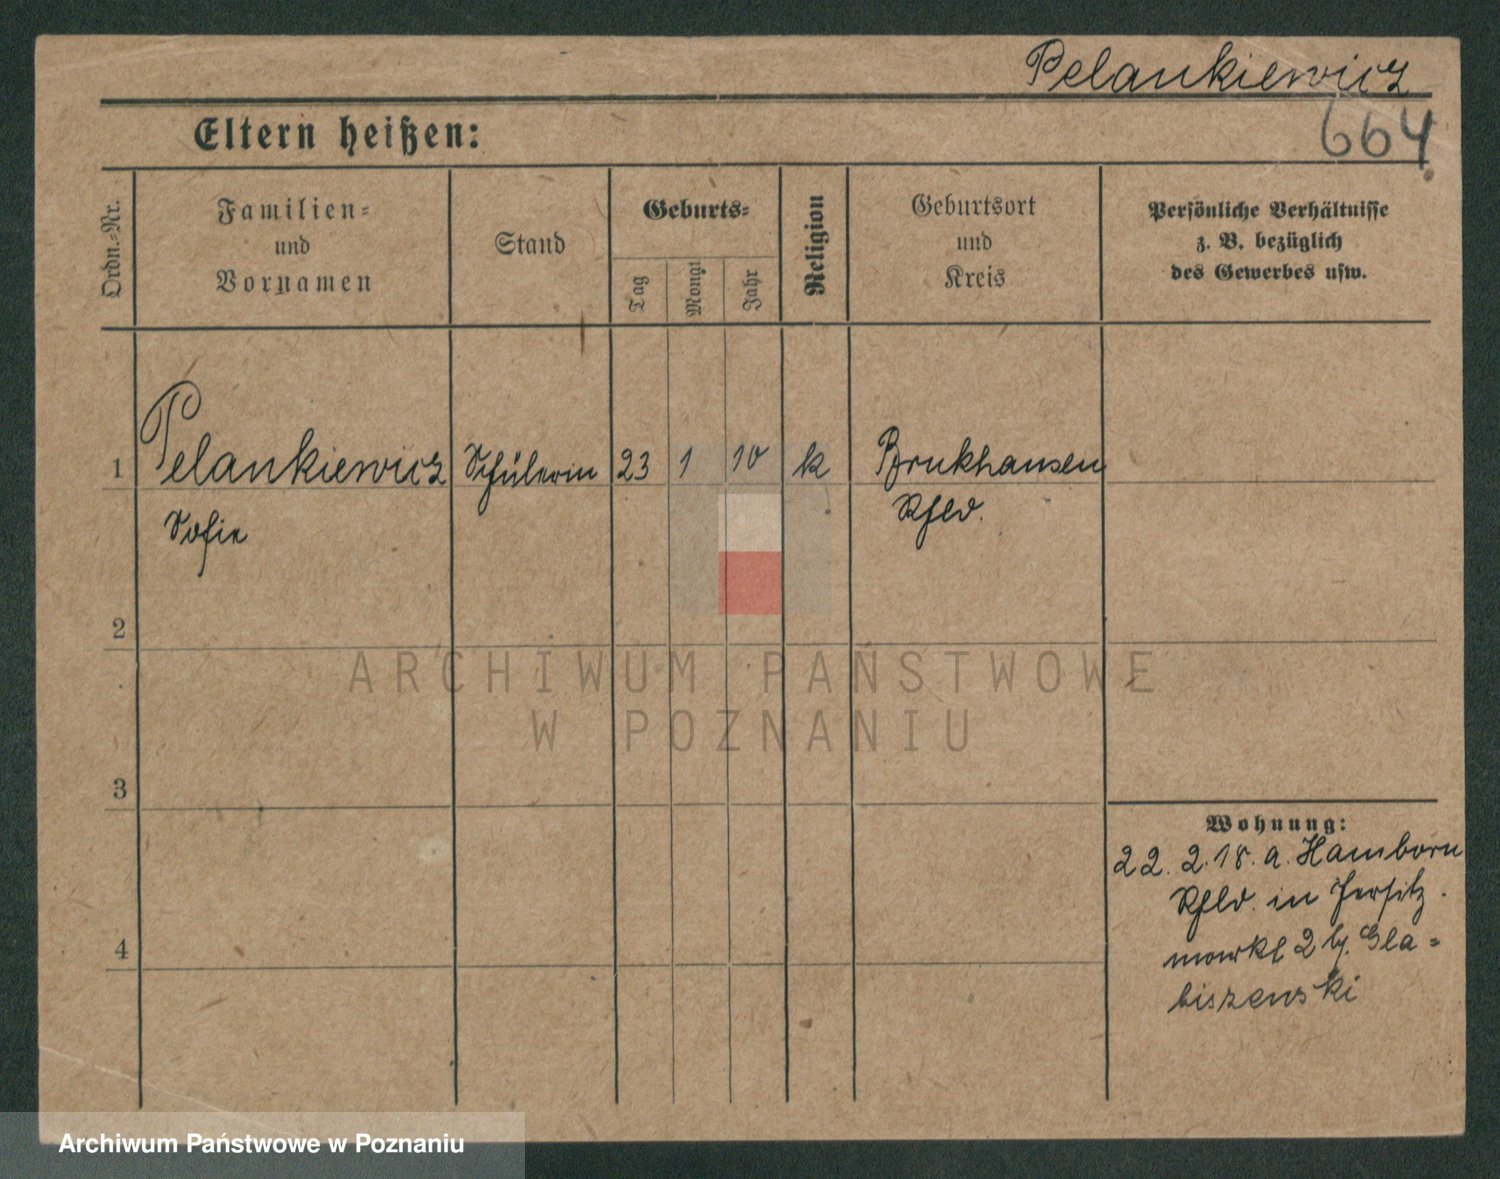 Pelankiewicz
664
Eltern heißen:
Ordn.-Nr.
Familien-
und
Vornamen
Stand
Geburts-
Tag
Monat
Jahr
Religion
Geburtsort
und
Kreis
Persönliche Verhältnisse
z. B. bezüglich
des Gewerbes usw.
1
Pelankiewicz
Schülerin
23
1
10
k
Brukhausen
Sofie
Rhld.
2
ARCHIWUM PAŃSTWOWE
W POZNANIU
3
Wohnung:
22. 2. 18. a. Hamborn
Rhld. in Jersitz.
markt 2 bj. Gla-
biszewski
4
Archiwum Państwowe w Poznaniu